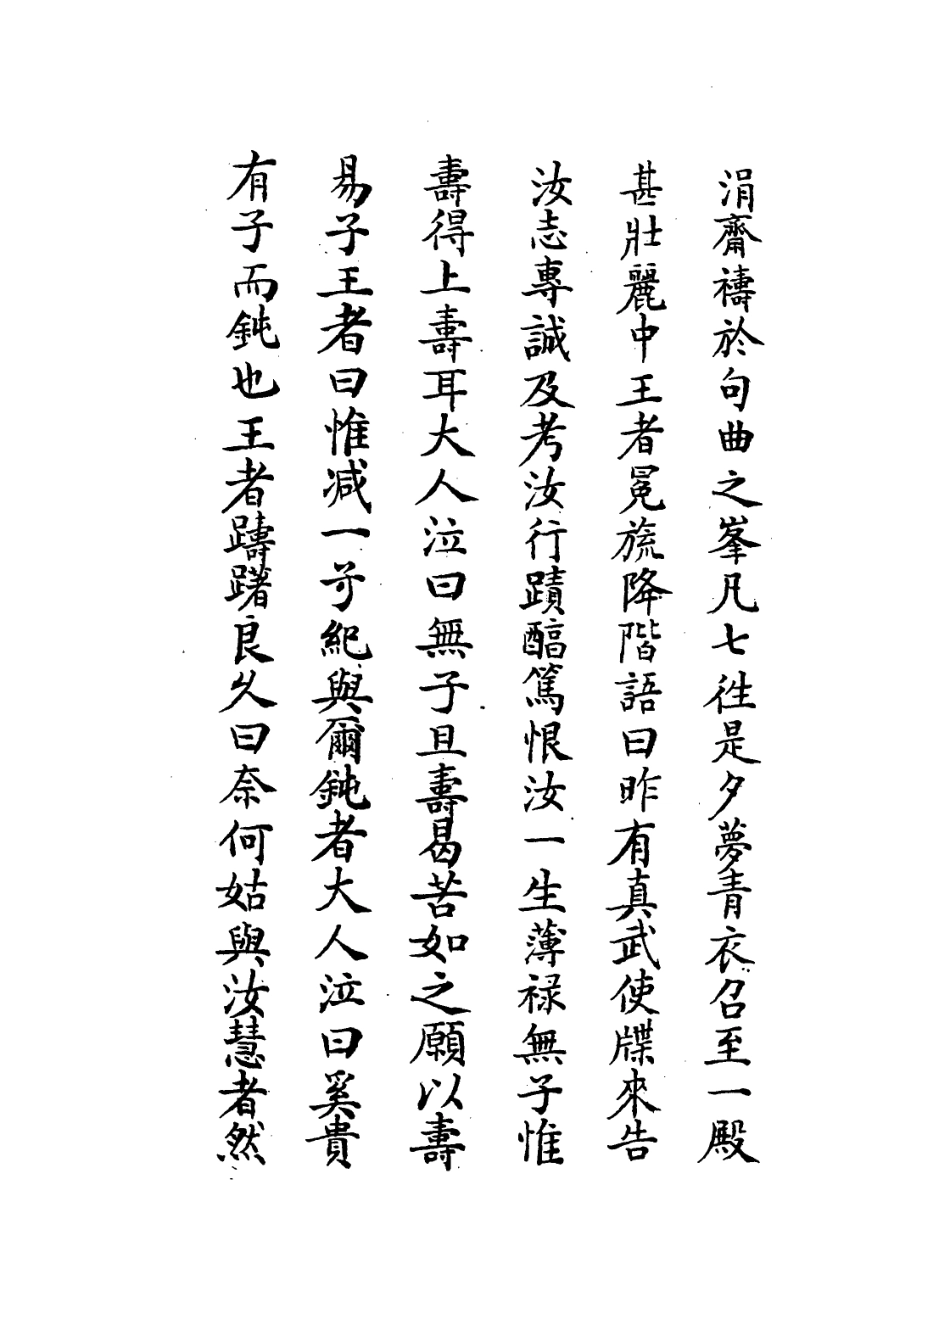 涓齋禱於句曲之峯凡七徃是夕夢青衣召至一殿
甚壯麗中王者冕旒降階語曰昨有真武使牒來告
汝志專誠及考汝行蹟酷篤恨汝一生薄禄無子惟
壽得上壽耳大人泣曰無子且壽曷苦如之願以壽
易子王者曰惟减一紀與爾鈍者大人泣曰奚貴
有子而鈍也王者躊躇良久曰奈何姑與汝慧者然